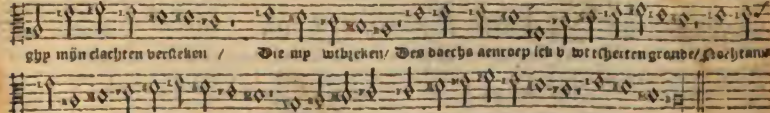 ghy mijn clachten versteken / Die my wtbreken/ Des daechs aenroep ick v wt tsherten gronde/ Nochtans